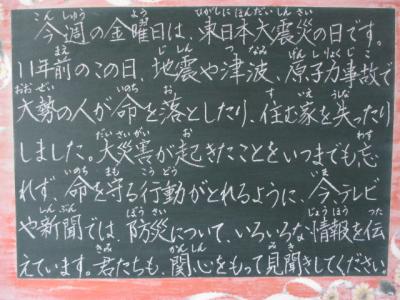 今週の金曜日は、東日本大震災の日です。
11年前のこの日、地震や津波、原子力事故で
大勢の人が命を落としたり、住む家を失ったり
しました。大災害が起きたことをいつまでも忘
れず、命を守る行動がとれるように、今、テレビ
や新聞では、防災について、いろいろな情報を伝
えています。君たちも、関心をもって見聞きしてください